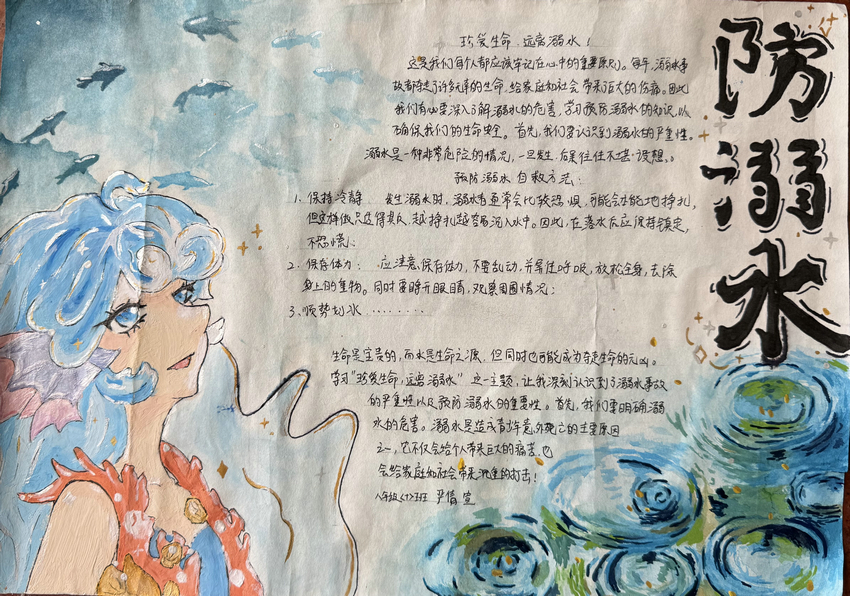 防溺水
珍爱生命，远离溺水！
这是我们每个人都应该牢记在心中的重要原则。每年，溺水事
故都夺走了许多无辜的生命，给家庭和社会带来巨大的伤痛。因此
我们有必要深入了解溺水的危害，学习预防溺水的知识，以
确保我们的生命安全。首先，我们要认识到溺水的严重性。
溺水是一种非常危险的情况，一旦发生，后果往往不堪设想。
预防溺水自救方法：
1. 保持冷静 发生溺水时，溺水者通常会比较恐惧，可能会本能地挣扎，
但这样做只适得其反，越挣扎越容易沉入水中。因此，在落水后应保持镇定，
不恐慌；
2. 保存体力： 应注意保存体力，不要乱动，并屏住呼吸，放松全身，去除
身上的重物。同时要睁开眼睛，观察周围情况；
3. 顺势划水 ········
生命是宝贵的，而水是生命之源，但同时也可能成为夺走生命的元凶。
学习“珍爱生命，远离溺水”这一主题，让我深刻认识到了溺水事故
的严重性以及预防溺水的重要性。首先，我们要明确溺
水的危害。溺水是造成青少年意外死亡的主要原因
之一，它不仅会给个人带来巨大的痛苦，也
会给家庭和社会带来沉重的打击！
八年级<7>班 尹倩萱